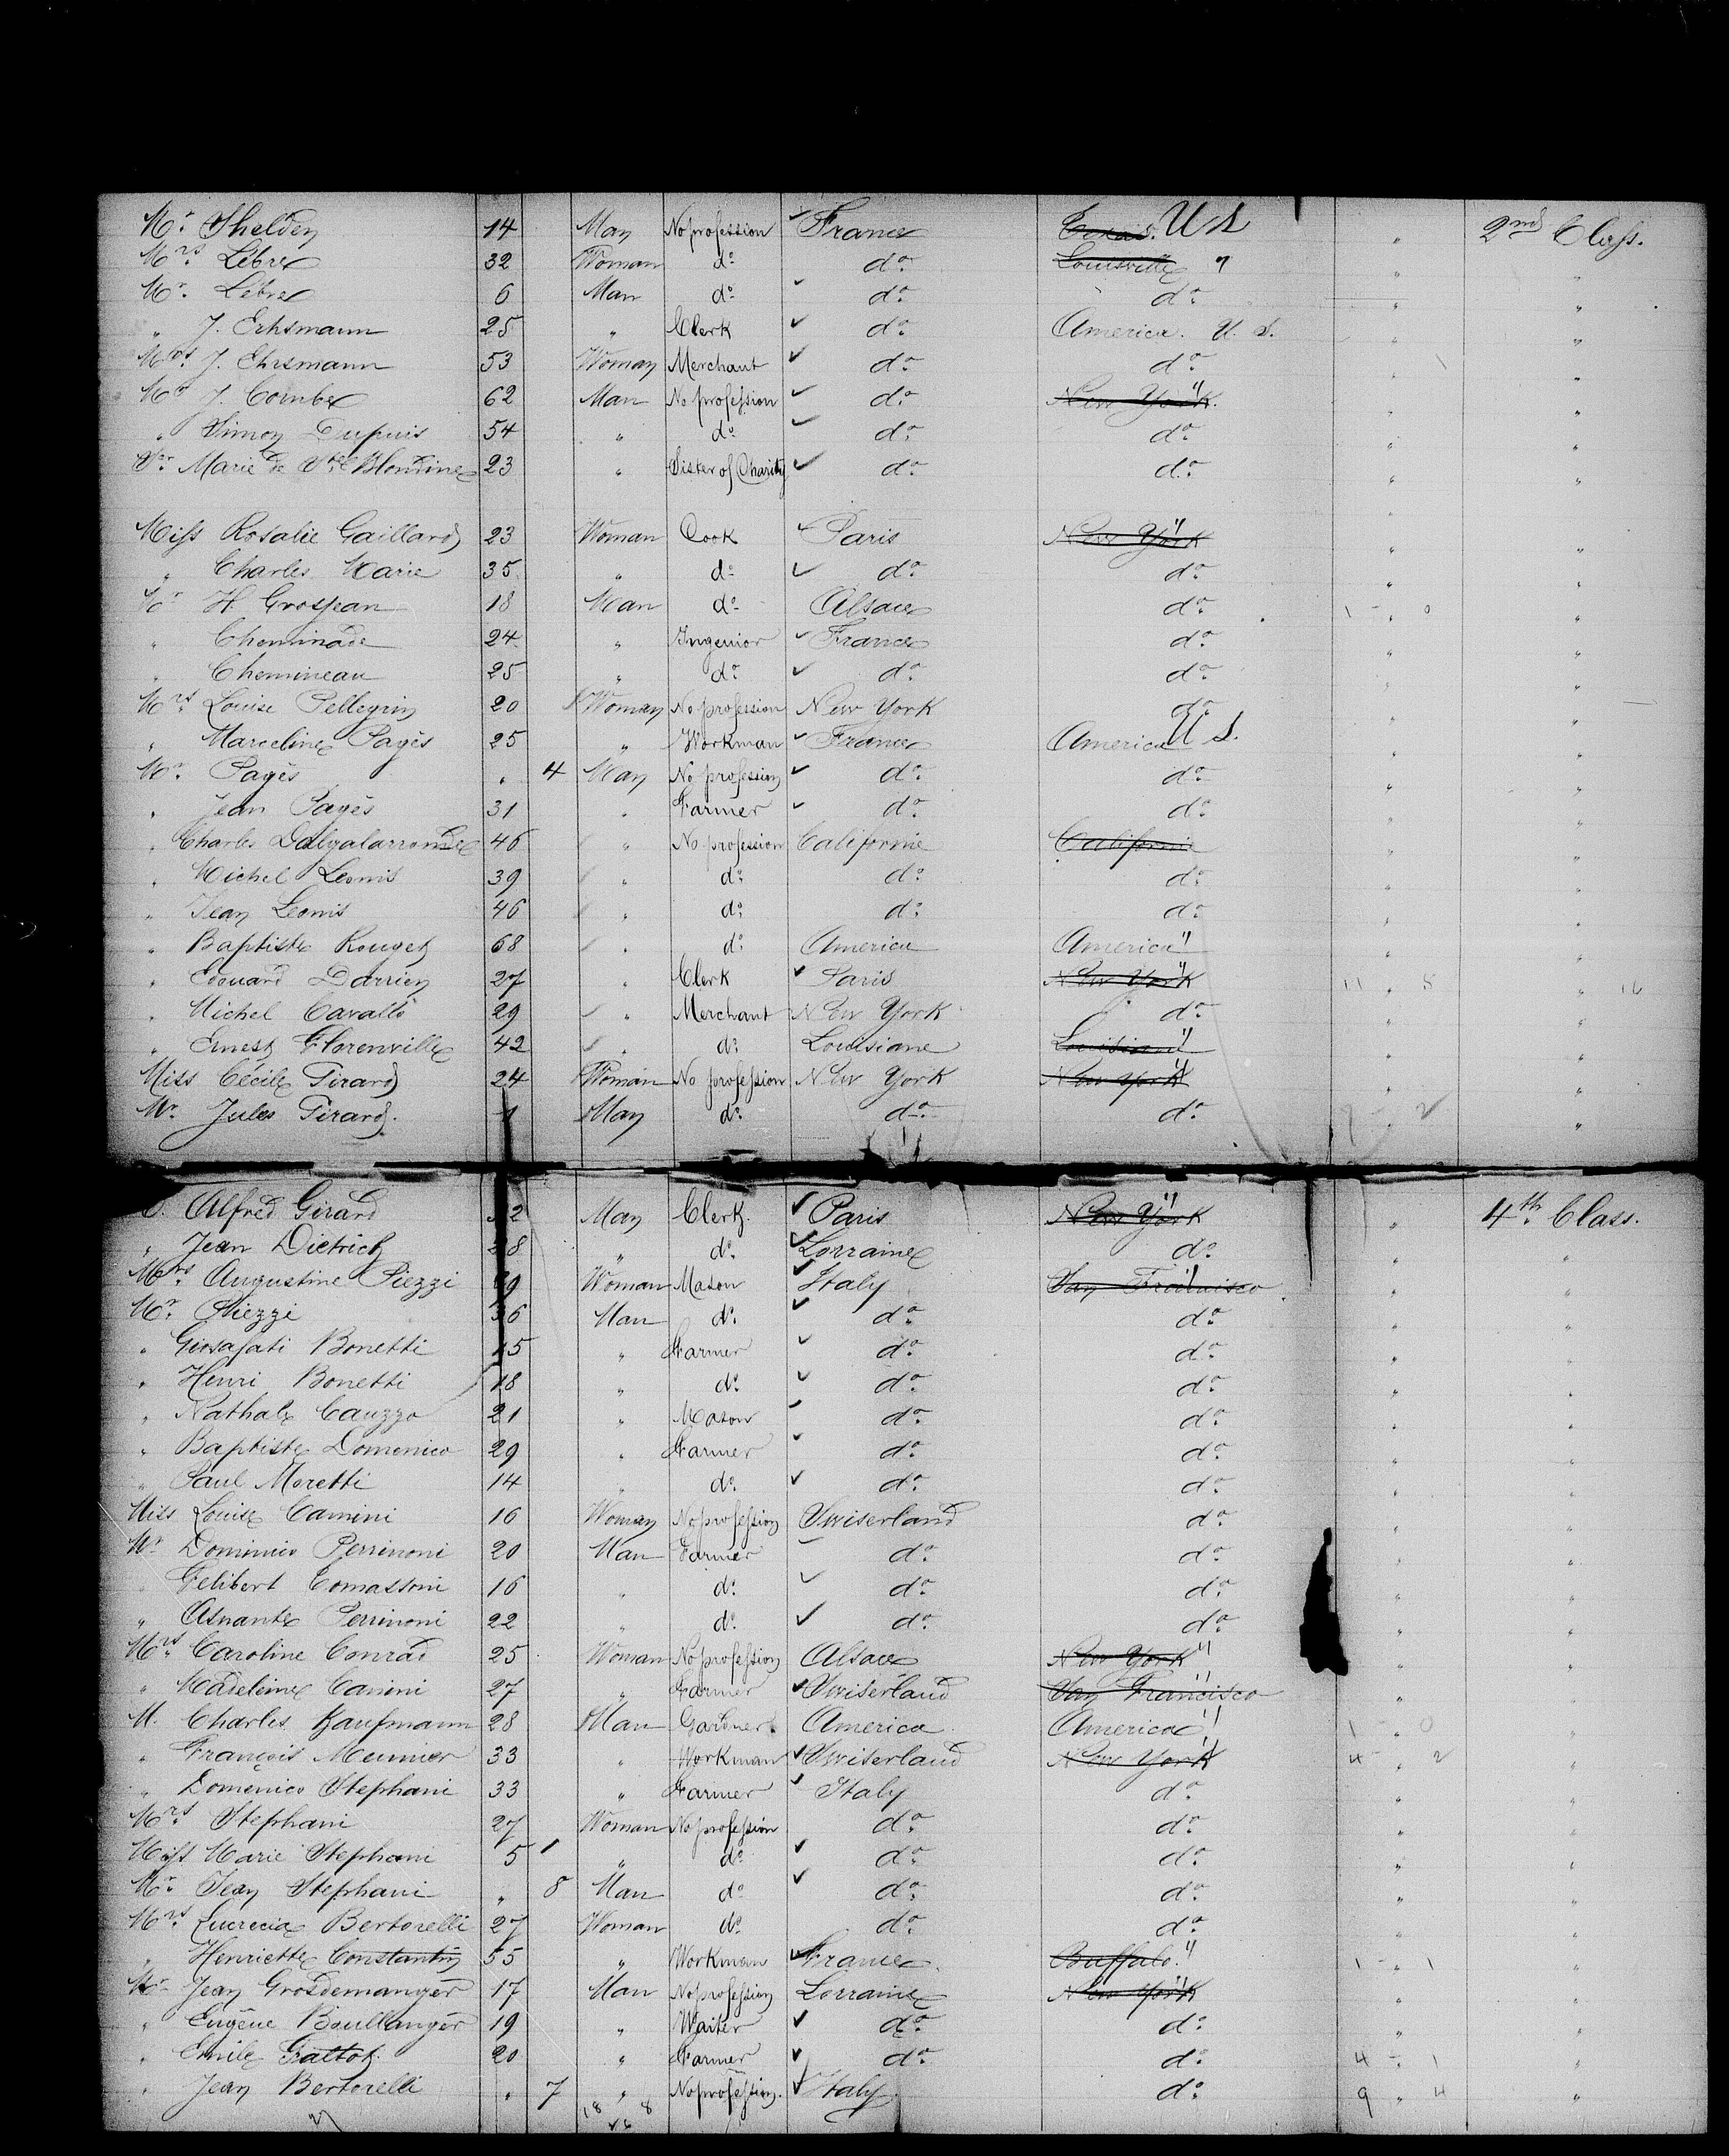 Mr. Shelden 14 Man No profession France Texas. U S " 2nd Class.
Mrs. Lèbre 32 Woman do. do. Louisville " " "
Mr. Lèbre 6 Man do. do. do. " "
" J. Erhsmann 25 " Clerk do. America. U. S. " "
Mrs J. Ehrsmann 53 Woman Merchant do. do. " "
Mr J. Combe 62 Man No profession do. New York. " "
" Simon Dupuis 54 " do. do. do. " "
Sr. Marie de Ste Blondine 23 " Sister of Charity do. do. " "
Miss Rosalie Gaillard 23 Woman Cook Paris New York " "
" Charles Marie 35 " do. do. do. " "
Mr H. Grosjean 18 Man do. Alsace do. 1 - 0 "
" Cheminade 24 " Ingenior France do. " "
" Chemineau 25 " do. do. do. " "
Mrs. Louise Pellegrin 20 Woman No profession New York do. " "
" Marceline Pagès 25 " Workman France America U S. " "
Mr. Pagès " 4 Man No profession do. do. " "
" Jean Pagès 31 " Farmer do. do. " "
" Charles Dalgalarronde 46 " No profession Californie Californie " "
" Michel Leonis 39 " do. do. do. " "
" Jean Leonis 46 " do. do. do. " "
" Baptiste Rouget 68 " do. America America " " "
" Edouard Darrien 27 " Clerk Paris New York 11 " 5 " 16
" Michel Cavallo 29 " Merchant New York do. " "
" Ernest Florenville 42 " do. Louisiane Louisiane " "
Miss Cécile Tirard 24 Woman No profession New York New York " "
Mr. Jules Tirard. 1 Man do. do. do. 7 " 2 "
Alfred Girard 32 Man Clerk. Paris New York " 4th Class.
" Jean Dietrich 28 " do. Lorraine do. " "
Mrs. Augustine Piezzi 29 Woman Mason Italy San Francisco " "
Mr. Piezzi 36 Man do. do. do. " "
" Giosafati Bonetti 15 " Farmer do. do. " "
" Henri Bonetti 18 " do. do. do. " "
" Nathale Cauzza 21 " Mason do. do. " "
" Baptiste Domenico 29 " Farmer do. do. " "
" Paul Moretti 14 " do. do. do. " "
Miss Louise Camini 16 Woman No profession Switserland do. " "
Mr Dominico Perrinoni 20 Man Farmer do. do. " "
" Felibert Comassoni 16 " do. do. do. " "
" Asnante Perrinoni 22 " do. do. do. " "
Mrs. Caroline Conrad 25 Woman No profession Alsace New York " " "
" Madeleine Camini 27 " Farmer Switserland San Francisco " "
M. Charles Kaufmann 28 Man Gardner America America " 1 - 0 "
" François Meunier 33 " Workman Switserland New York 4 " 2 "
" Domenico Stephani 33 " Farmer Italy do. " "
Mrs. Stephani 27 Woman No profession do. do. " "
Miss Marie Stephani 5 1 " do. do. do. " "
Mr. Jean Stephani " 8 Man do. do. do. " "
Mrs. Lucrecia Bertorelli 27 Woman do. do. do. " "
" Henriette Constantin 55 " Workman France. Buffalo. " 1 - 1 "
Mr Jean Grosdemanger 17 Man No profession Lorraine New York " "
" Eugène Boullanger 19 " Waiter do. do. " "
" Emile Fattot. 20 " Farmer do. do. 4 - 1 "
" Jean Bertorelli " 7 " No profession. Italy do. 9 " 4 "
18 8